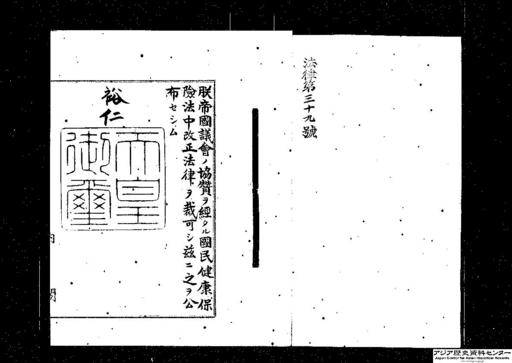 法律第三十九號
朕帝國議會ノ協贊ヲ經タル國民健康保
險法中改正法律ヲ裁可シ茲ニ之ヲ公
布セシム
裕仁
天皇
御璽
内閣
アジア歴史資料センター
Japan Center for Asian Historical Records